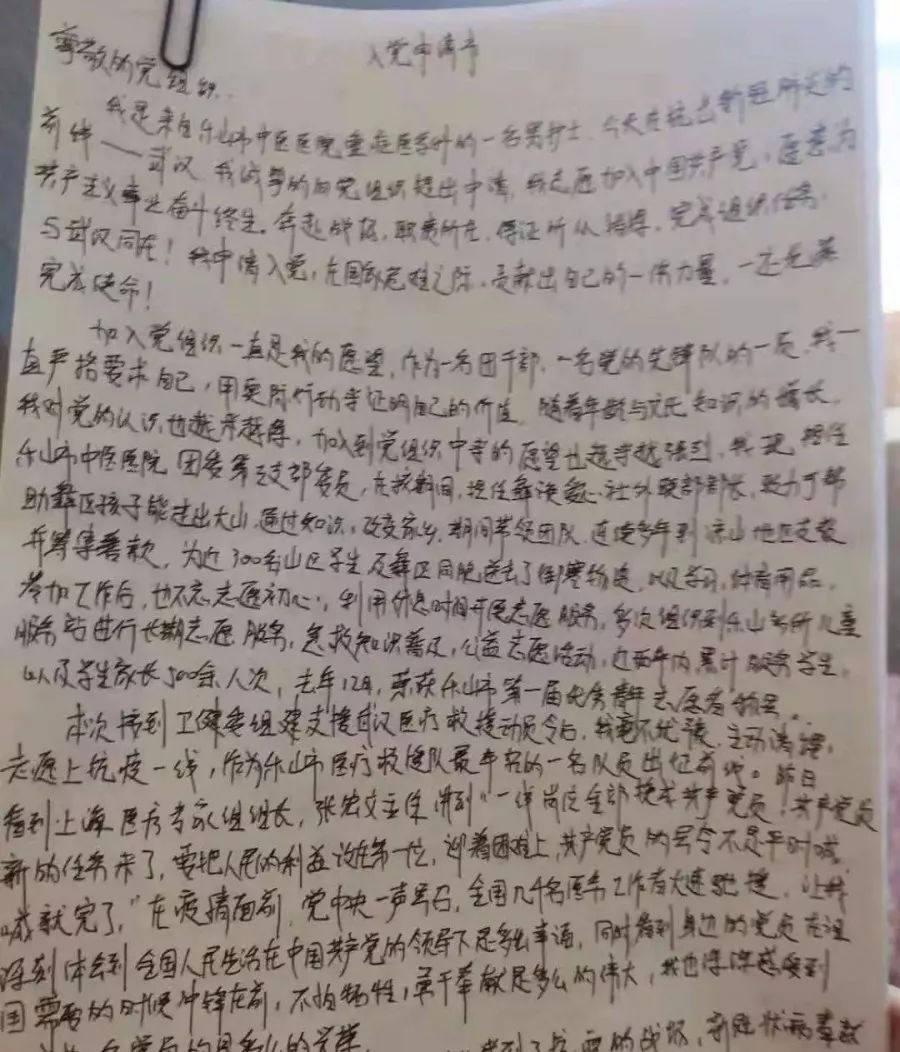 入党申请书
尊敬的党组织:
我是来自乐山市中医医院重症医学科的一名男护士,今天在抗击新冠肺炎的
前线——武汉,我诚挚的向党组织提出申请,我志愿加入中国共产党,愿意为
共产主义事业奋斗终生。奔赴战场,职责所在,保证听从指挥,完成组织任务,
与武汉同在!我申请入党,在国家危难之际,贡献出自己的一份力量,一定
完成使命!
加入党组织一直是我的愿望,作为一名团干部,一名党的先锋队的一员,我一
直严格要求自己,用实际行动来证明自己的价值,随着年龄与文化知识的增长,
我对党的认识也越来越深,加入到党组织中来的愿望也越来越强烈,我现担任
乐山市中医医院团委第三支部委员,在校期间,担任社外联部部长,致力于帮
助彝区孩子能走出大山,通过知识,改变家乡,期间带领团队,连续多年到凉山地区支教
并筹集善款,为近300名山区学生及彝区同胞送去了御寒物资,以及学习,体育用品,
参加工作后,也不忘志愿初心,利用休息时间开展志愿服务,多次组织到乐山儿童
服务站进行长期志愿服务,急救知识普及,公益志愿活动,近两年内,累计服务学生,
以及学生家长500余人次,去年12月,荣获乐山市第一届优秀青年志愿者称号。
本次接到卫健委组建支援武汉医疗救援动员令后,我毫不犹豫,主动请缨,
志愿上抗疫一线,作为乐山市医疗救援队最年轻的一名队员出征前线。昨日
看到上海医疗专家组组长,张宏文主任讲到"一线岗位全部换成共产党员!共产党员
新的任务来了,要把人民的利益放在第一位,迎着困难上,共产党员的号令不是平时喊
喊就完了,"在疫情面前,党中央一声号召,全国几千名医务工作者火速驰援,让我
深刻体会到全国人民生活在中国共产党的领导下是多么幸福,同时看到身边的党员在祖
国需要的时候冲锋在前,不怕牺牲,勇于奉献是多么的伟大,我也深深感受到
党员的是多么的光荣。
来到了抗疫的战场,新冠状病毒